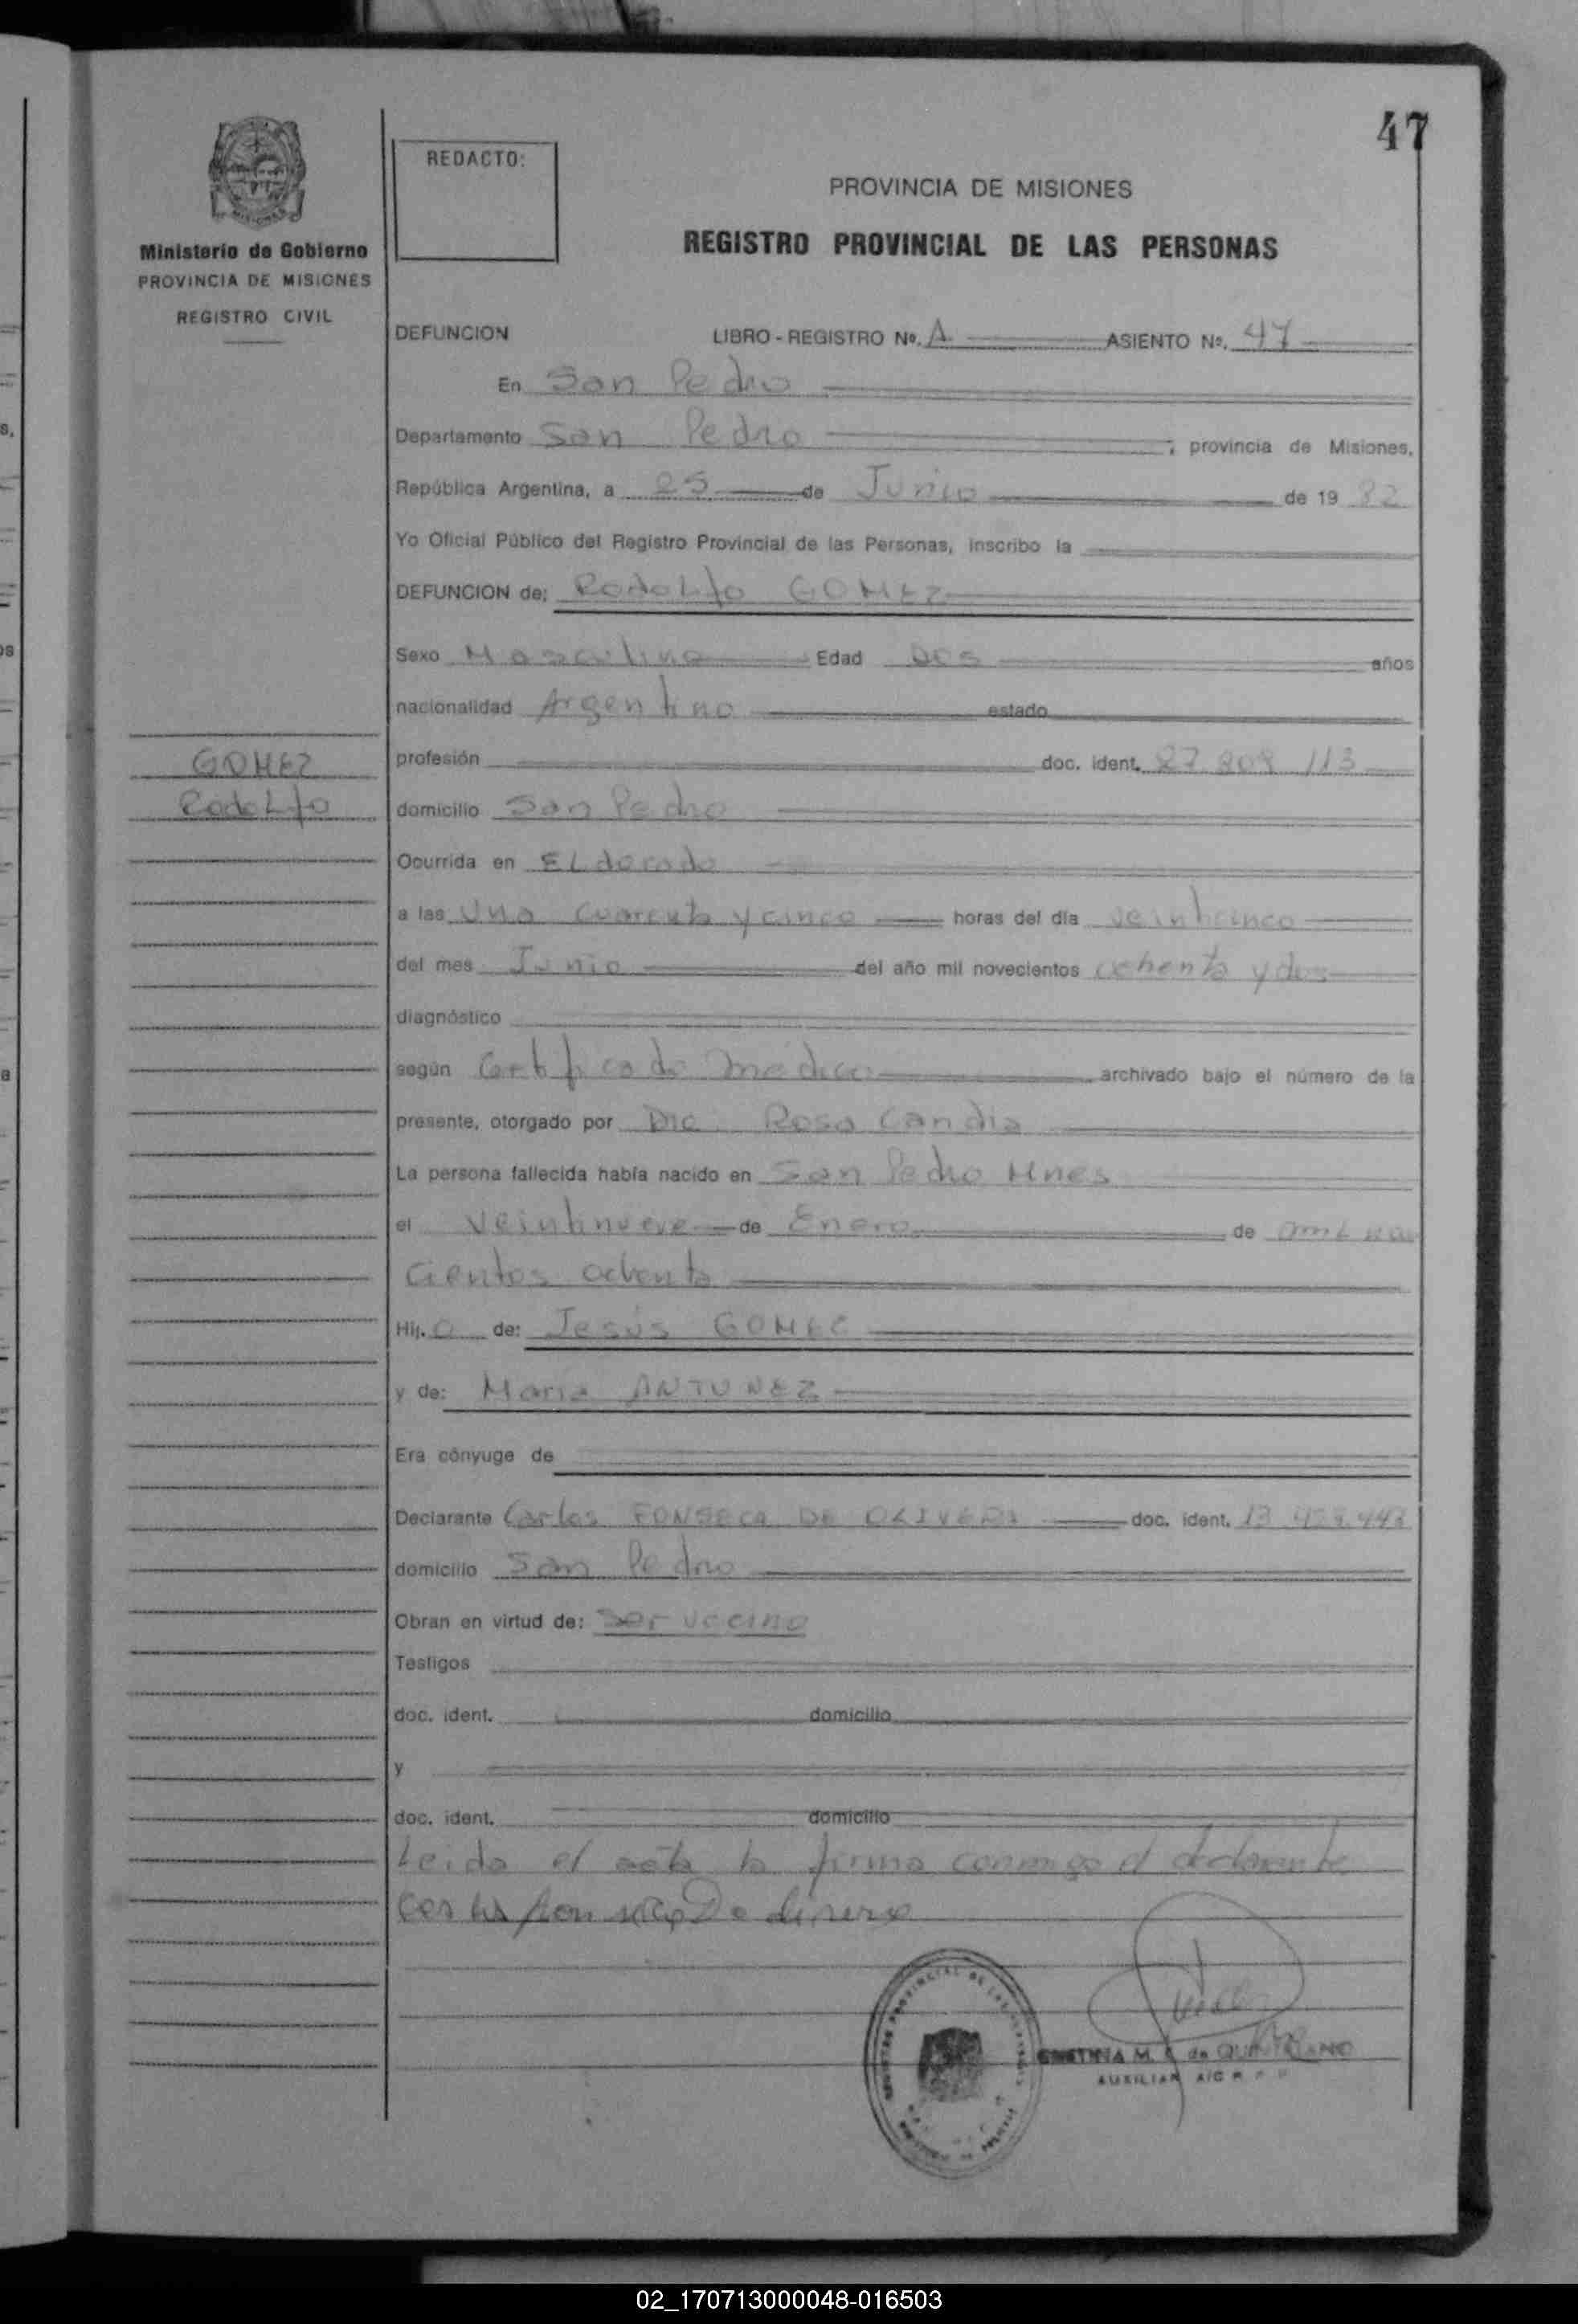 47
Ministerio de Gobierno
PROVINCIA DE MISIONES
REGISTRO CIVIL
REDACTO:
PROVINCIA DE MISIONES
REGISTRO PROVINCIAL DE LAS PERSONAS
DEFUNCION LIBRO - REGISTRO Nº. A ASIENTO Nº. 47
En San Pedro
Departamento San Pedro ; provincia de Misiones,
República Argentina, a 25 de Junio de 19 82
Yo Oficial Público del Registro Provincial de las Personas, inscribo la
DEFUNCION de: Rodolfo GOMEZ
Sexo Masculino Edad Dos años
nacionalidad Argentino estado
GOMEZ
Rodolfo
profesión doc. ident. 27 809 113
domicilio San Pedro
Ocurrida en ELdorado
a las Una cuarenta y cinco horas del día veinticinco
del mes Junio del año mil novecientos ochenta y dos
diagnóstico
según Certificado médico archivado bajo el número de la
presente, otorgado por Dra. Rosa Candia
La persona fallecida había nacido en San Pedro Mnes
el Veintinueve de Enero de mil nove
cientos ochenta
Hij. o de: Jesús GOMEZ
y de: María ANTUNEZ
Era cónyuge de
Declarante Carlos FONSECA DE OLIVERA doc. ident. 13
domicilio San Pedro
Obran en virtud de: Ser vecino
Testigos
doc. ident. domicilio
y
doc. ident. domicilio
Leida el acta la firma conmigo el declarante
CRISTINA M. de
AUXILIAR A/C R. P. P.
02_170713000048-016503